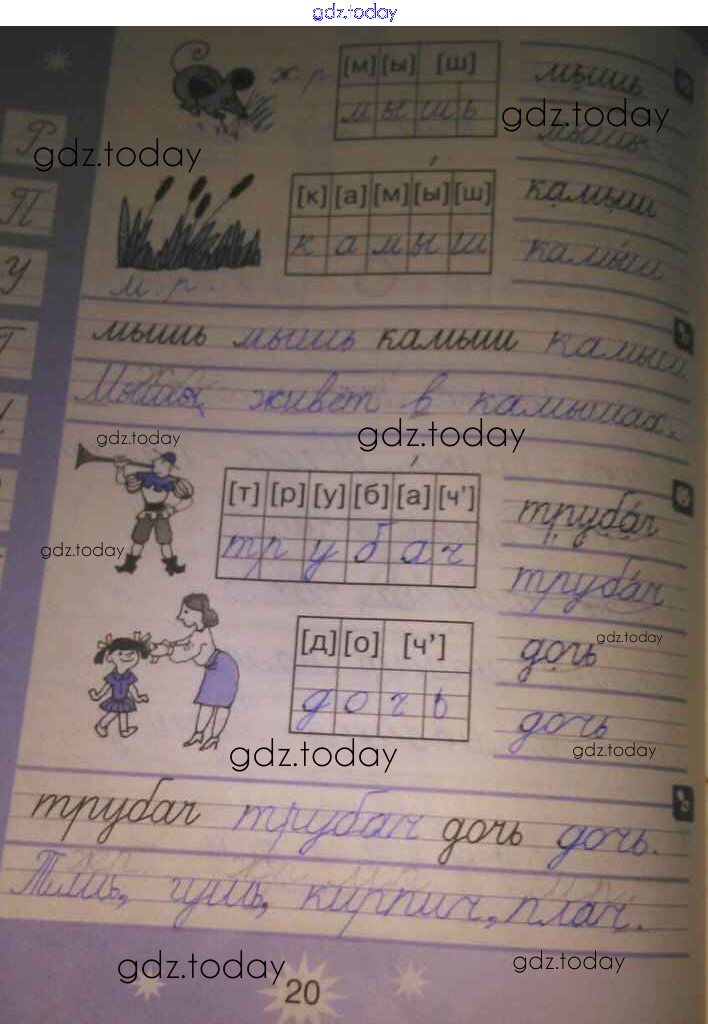 gdz.today
ж.р.
[м] [ы] [ш]
м ы ш ь
мышь
gdz.today
мышь
gdz.today
[к] [а] [м] [ы] [ш]
к а м ы ш
камыш
камыш
м.р.
мышь мышь камыш камыш
Мышь живёт в камышах.
gdz.today
gdz.today
[т] [р] [у] [б] [а] [ч']
т р у б а ч
трубач
gdz.today
трубач
[д] [о] [ч']
д о ч ь
gdz.today
дочь
дочь
gdz.today
gdz.today
трубач трубач дочь дочь.
гушь, кирпич, плач.
gdz.today
gdz.today
20
Р
П
У